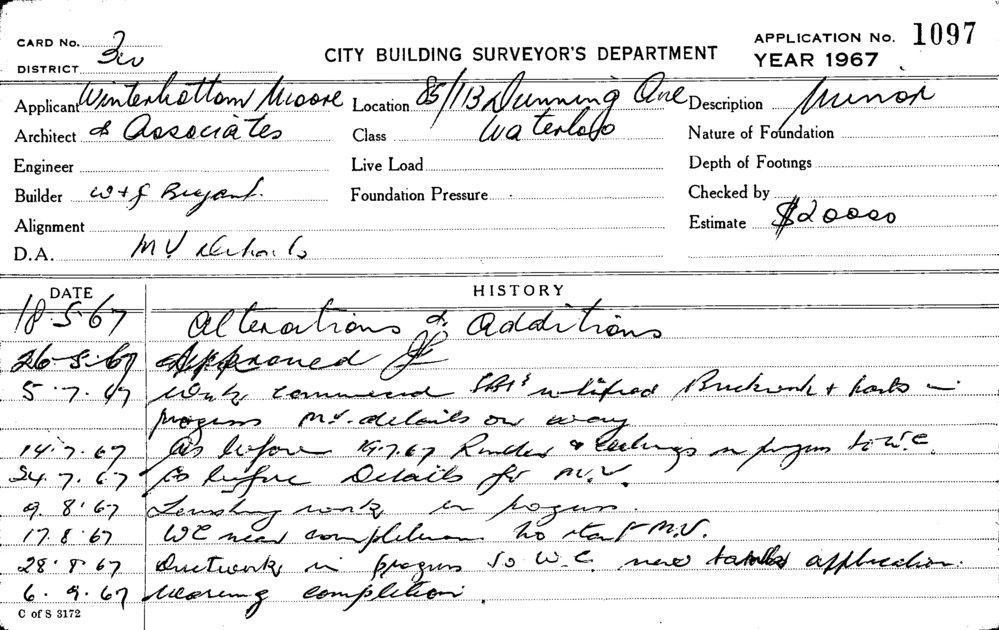 CARD No. 3w
DISTRICT
CITY BUILDING SURVEYOR'S DEPARTMENT
APPLICATION No. 1097
YEAR 1967
Applicant Winterbottom Moore
Location 85/113 Dunning Ave
Description Minor
Architect & Associates
Class Waterloo
Nature of Foundation
Engineer
Live Load
Depth of Footings
Builder W & J Bryant.
Foundation Pressure
Checked by
Alignment
Estimate $20000
D.A. M V
DATE HISTORY
18.5.67 Alterations & Additions
26.5.67 Approved
5.7.67 Work commenced notified Brickwork + in
progress M.V. details on way
14.7.67 As before 19.7.67 Render & ceilings in progress to W.C.
24.7.67 As before Details for M.V.
9.8.67 Finishing work in progress.
17.8.67 WC near completion no start M.V.
28.8.67 Ductwork in progress to W.C. new application.
6.9.67 Nearing completion.
C of S 3172